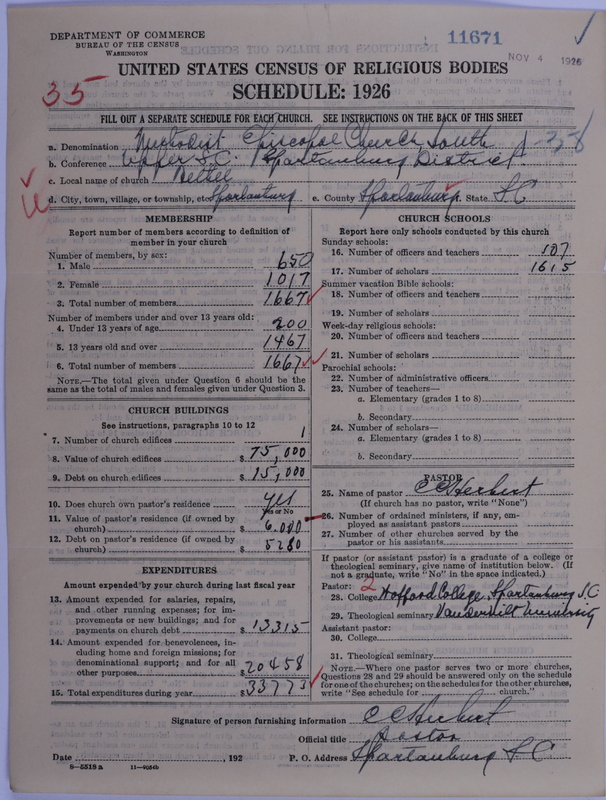 DEPARTMENT OF COMMERCE
BUREAU OF THE CENSUS
WASHINGTON
11671
NOV 4 1926
UNITED STATES CENSUS OF RELIGIOUS BODIES
35
SCHEDULE: 1926
FILL OUT A SEPARATE SCHEDULE FOR EACH CHURCH. SEE INSTRUCTIONS ON THE BACK OF THIS SHEET
a. Denomination Methodist Episcopal Church South 1-238
b. Conference Upper S.C. / Spartanburg District
c. Local name of church Bethel
d. City, town, village, or township, etc. Spartanburg e. County Spartanburg f. State S C
MEMBERSHIP
Report number of members according to definition of member in your church
Number of members, by sex:
1. Male 650
2. Female 1017
3. Total number of members 1667
Number of members under and over 13 years old:
4. Under 13 years of age 200
5. 13 years old and over 1467
6. Total number of members 1667
NOTE.—The total given under Question 6 should be the same as the total of males and females given under Question 3.
CHURCH BUILDINGS
See instructions, paragraphs 10 to 12
7. Number of church edifices 1
8. Value of church edifices $ 75,000
9. Debt on church edifices $ 15,000
10. Does church own pastor's residence yes
Yes or No
11. Value of pastor's residence (if owned by church) $ 6.000
12. Debt on pastor's residence (if owned by church) $ 5280
EXPENDITURES
Amount expended by your church during last fiscal year
13. Amount expended for salaries, repairs, and other running expenses; for improvements or new buildings; and for payments on church debt $ 13315
14. Amount expended for benevolences, including home and foreign missions; for denominational support; and for all other purposes $ 20458
15. Total expenditures during year $ 33773
CHURCH SCHOOLS
Report here only schools conducted by this church
Sunday schools:
16. Number of officers and teachers 107
17. Number of scholars 1615
Summer vacation Bible schools:
18. Number of officers and teachers
19. Number of scholars
Week-day religious schools:
20. Number of officers and teachers
21. Number of scholars
Parochial schools:
22. Number of administrative officers
23. Number of teachers—
a. Elementary (grades 1 to 8)
b. Secondary
24. Number of scholars—
a. Elementary (grades 1 to 8)
b. Secondary
PASTOR
25. Name of pastor C C Herbert
(If church has no pastor, write "None")
26. Number of ordained ministers, if any, employed as assistant pastors
27. Number of other churches served by the pastor or his assistants
If pastor (or assistant pastor) is a graduate of a college or theological seminary, give name of institution below. (If not a graduate, write "No" in the space indicated.)
Pastor: 2
28. College Wofford College, Spartanburg S.C
29. Theological seminary Vanderbilt University
Assistant pastor:
30. College
31. Theological seminary
NOTE.—Where one pastor serves two or more churches, Questions 28 and 29 should be answered only on the schedule for one of the churches; on the schedules for the other churches, write "See schedule for church."
Signature of person furnishing information C C Herbert
Official title Pastor
Date , 192 P. O. Address Spartanburg S C
8—5518 a 11—9054b